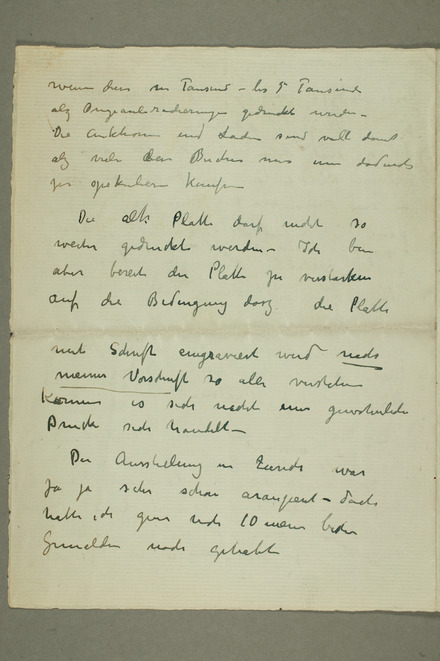 wenn dies in Tausend – bis 5 Tausend
als Originalradierungen gedruckt werden –
Die Auktionen und Laden sind voll damit
als viele der nur um dadurch
zu spekulieren Kaufen
Die alte Platte darf nicht so
weiter gedruckt werden – Ich bin
aber bereit die Platte zu verstärken
auf die Bedingung das die Platte
mit Schrift eingraviert wird nach
meiner Vorschrift so alle verstehen
Können es sich nicht um gewöhnliche
Drucke sich handelt –
Die Ausstellung in Zurich war
ja ja sehr schon arangiert – doch
hatte ich gern noch 10 meine
Gemälden noch gehabt